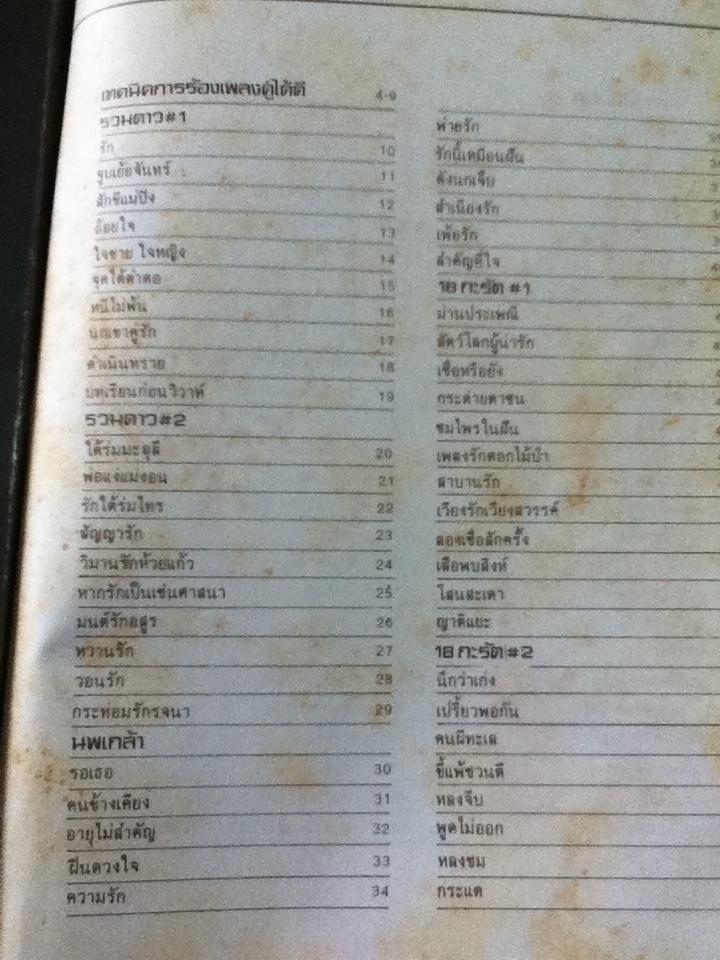 เทคนิคการร้องเพลงคู่ให้ดี 4-9
รวมดาว#1
รัก 10
จูบเย้ยจันทร์ 11
สักขีแม่ปิง 12
น้อยใจ 13
ใจชาย ใจหญิง 14
จุดไต้ตำตอ 15
หนีไม่พ้น 16
นกเขาคู่รัก 17
ดำเนินทราย 18
บทเรียนก่อนวิวาห์ 19
รวมดาว#2
ใต้ร่มมะลุลี 20
พ่อแง่แม่งอน 21
รักใต้ร่มไทร 22
สัญญารัก 23
วิมานรักห้วยแก้ว 24
หากรักเป็นเช่นศาสนา 25
มนต์รักอสูร 26
หวานรัก 27
วอนรัก 28
กระท่อมรักรจนา 29
นพเกล้า
รอเธอ 30
คนข้างเคียง 31
อายุไม่สำคัญ 32
ฝืนดวงใจ 33
ความรัก 34
พ่ายรัก
รักนี้เหมือนฝัน
ดังนกเจ็บ
สำเนียงรัก
เพ้อรัก
สำคัญที่ใจ
18 กะรัต #1
ม่านประเพณี
สัตว์โลกผู้น่ารัก
เชื่อหรือยัง
กระต่ายตาชน
ชมไพรในฝัน
เพลงรักดอกไม้บ้า
สาบานรัก
เวียงรักเวียงสวรรค์
ลองเชื่อสักครั้ง
เสือพบสิงห์
โสนสะเดา
ญาติแยะ
18 กะรัต #2
นึกว่าเก่ง
เปรี้ยวพอกัน
คนผีทะเล
ขี้แพ้ชวนตี
หลงจีบ
พูดไม่ออก
หลงชม
กระแต